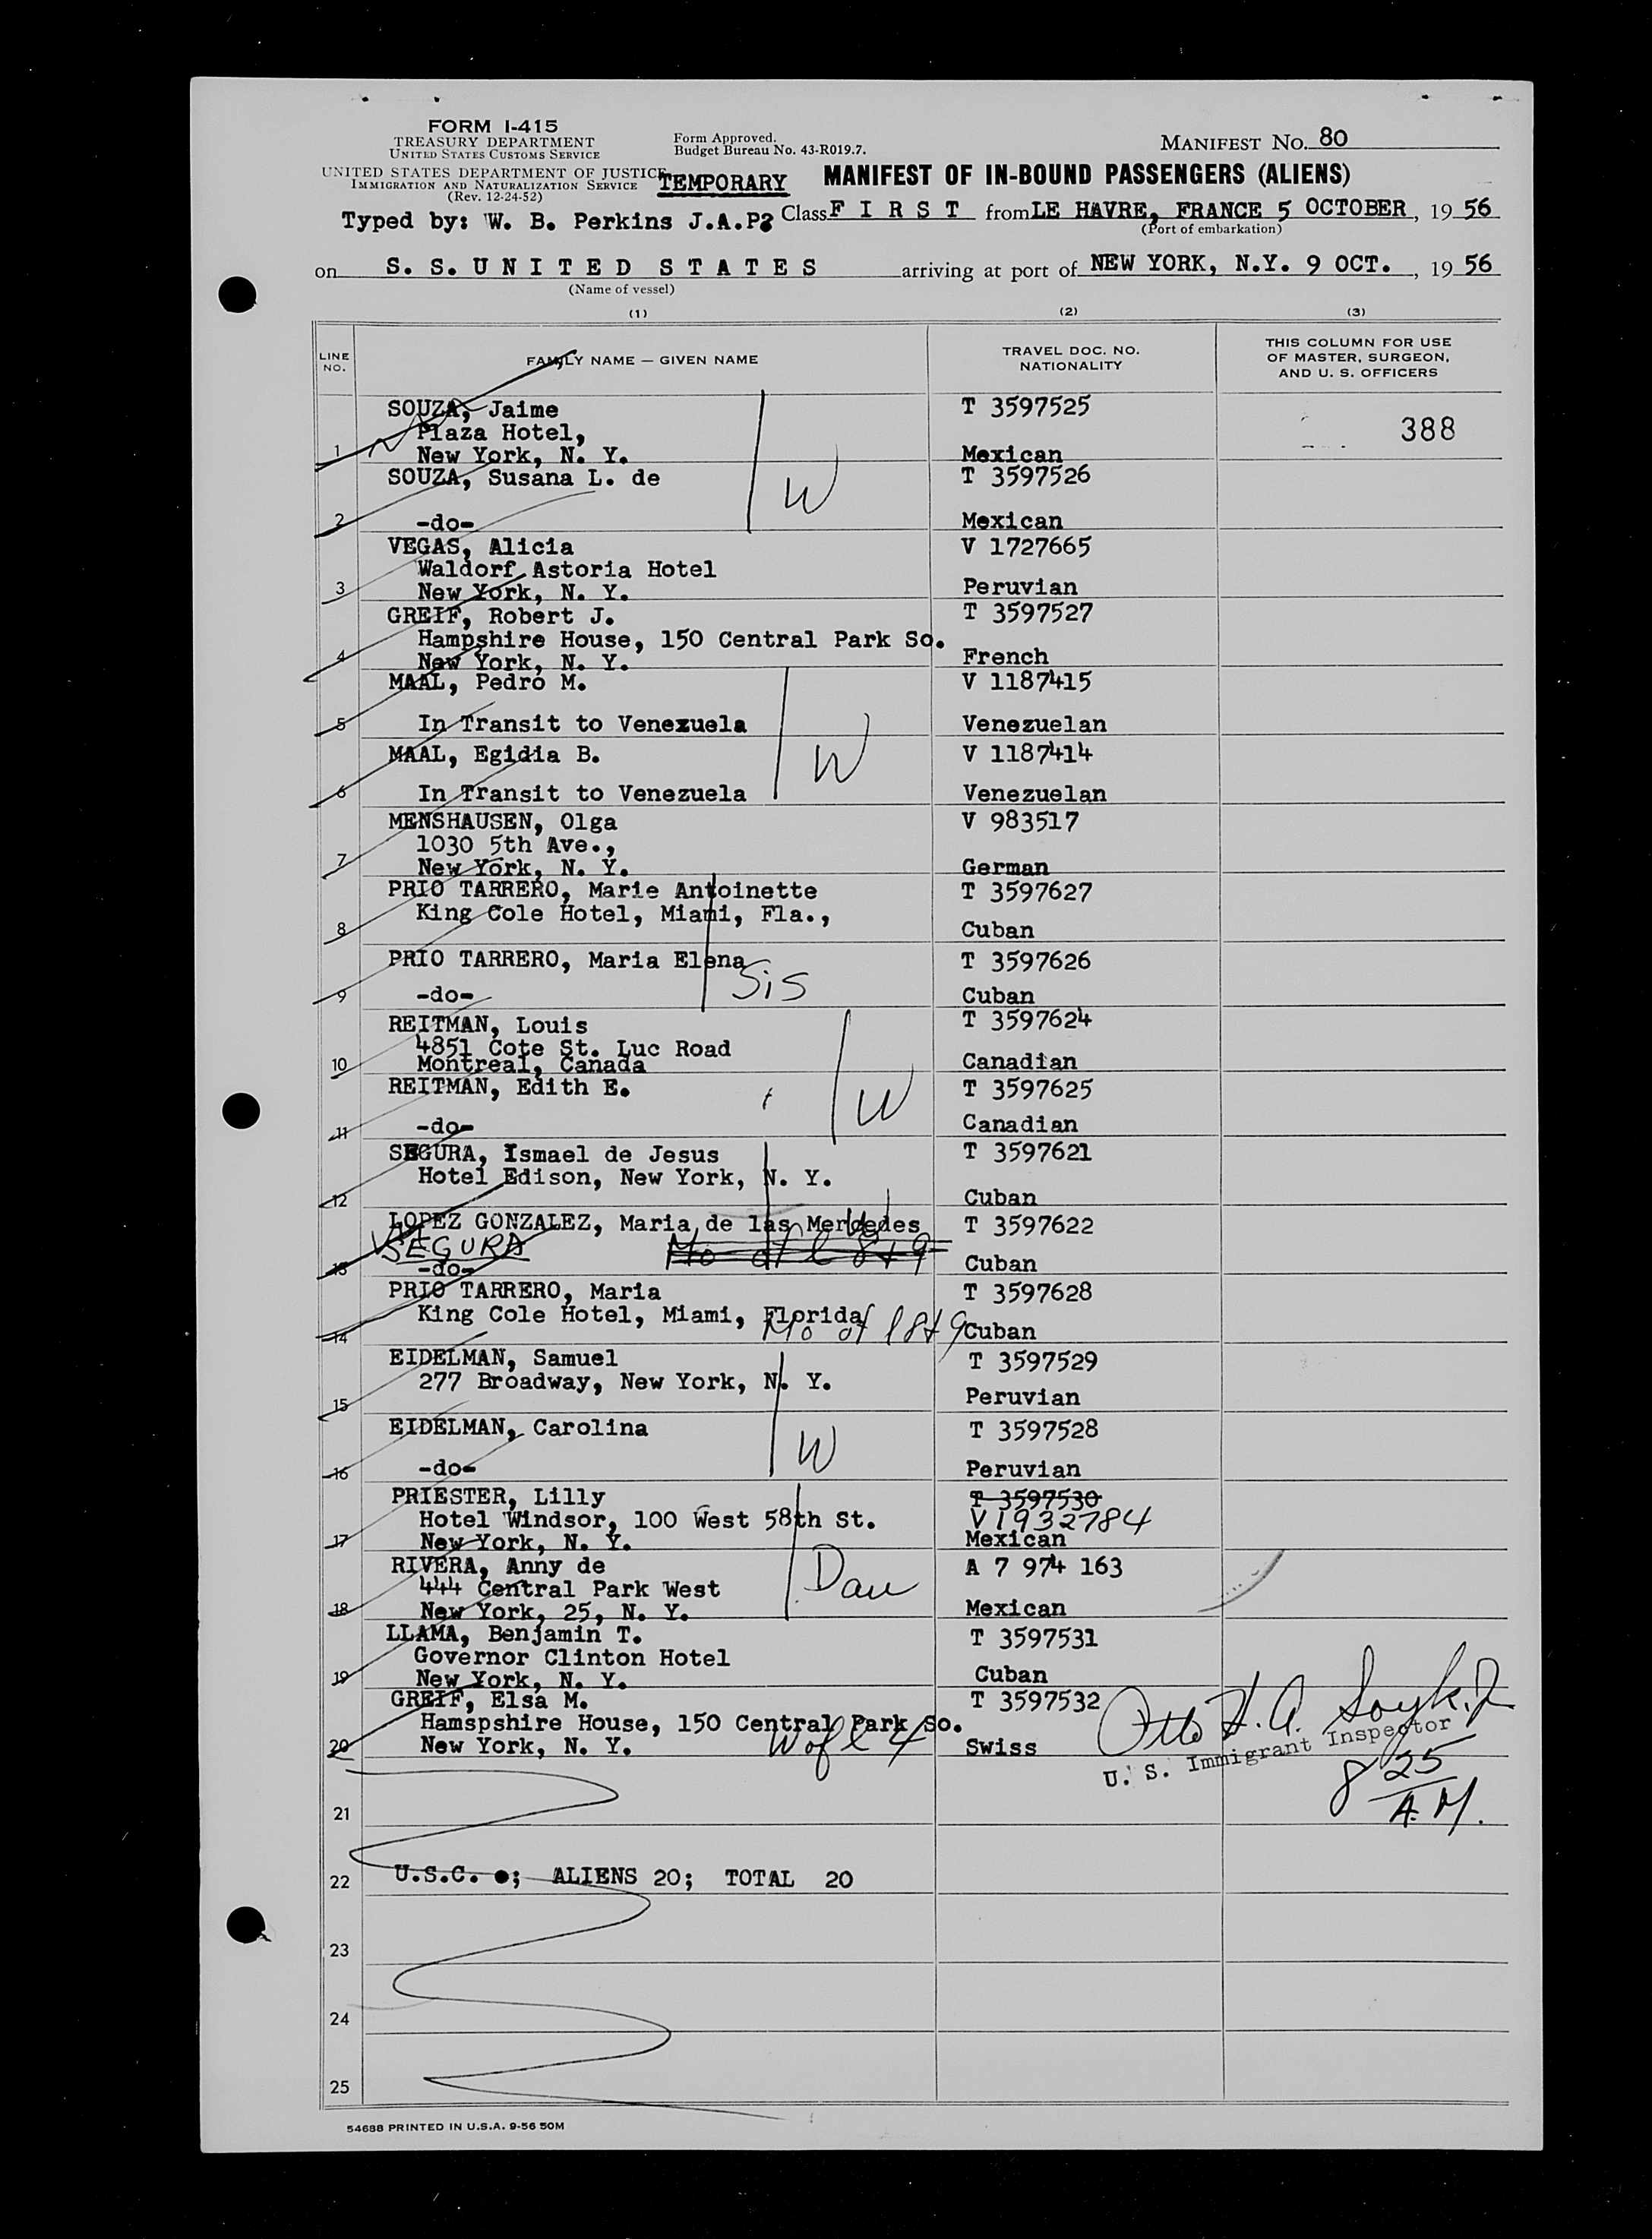 FORM I-415
TREASURY DEPARTMENT
UNITED STATES CUSTOMS SERVICE
UNITED STATES DEPARTMENT OF JUSTICE
IMMIGRATION AND NATURALIZATION SERVICE
(Rev. 12-24-52)
Form Approved.
Budget Bureau No. 43-R019.7.
MANIFEST No. 80
TEMPORARY
MANIFEST OF IN-BOUND PASSENGERS (ALIENS)
Typed by: W. B. Perkins J.A.P. Class F I R S T from LE HAVRE, FRANCE 5 OCTOBER, 19 56
(Port of embarkation)
on S. S. U N I T E D S T A T E S arriving at port of NEW YORK, N.Y. 9 OCT. , 19 56
(Name of vessel)
(1) (2) (3)
LINE NO. FAMILY NAME — GIVEN NAME TRAVEL DOC. NO. NATIONALITY THIS COLUMN FOR USE OF MASTER, SURGEON, AND U. S. OFFICERS
SOUZA, Jaime T 3597525
Plaza Hotel, 388
1 New York, N. Y. Mexican
SOUZA, Susana L. de T 3597526
W
2 -do- Mexican
VEGAS, Alicia V 1727665
Waldorf Astoria Hotel
3 New York, N. Y. Peruvian
GREIF, Robert J. T 3597527
Hampshire House, 150 Central Park So.
4 New York, N. Y. French
MAAL, Pedro M. V 1187415
5 In Transit to Venezuela Venezuelan
MAAL, Egidia B. V 1187414
W
6 In Transit to Venezuela Venezuelan
MENSHAUSEN, Olga V 983517
1030 5th Ave.,
7 New York, N. Y. German
PRIO TARRERO, Marie Antoinette T 3597627
King Cole Hotel, Miami, Fla.,
8 Cuban
PRIO TARRERO, Maria Elena T 3597626
Sis
9 -do- Cuban
REITMAN, Louis T 3597624
4851 Cote St. Luc Road
10 Montreal, Canada Canadian
REITMAN, Edith E. T 3597625
W
11 -do- Canadian
SEGURA, Ismael de Jesus T 3597621
Hotel Edison, New York, N. Y.
12 Cuban
LOPEZ GONZALEZ, Maria de las Mercedes T 3597622
SEGURA W Mo of l 8+9
13 -do- Cuban
PRIO TARRERO, Maria T 3597628
King Cole Hotel, Miami, Florida
14 Mo of l 8+9 Cuban
EIDELMAN, Samuel T 3597529
277 Broadway, New York, N. Y.
15 Peruvian
EIDELMAN, Carolina T 3597528
W
16 -do- Peruvian
PRIESTER, Lilly T 3597530
Hotel Windsor, 100 West 58th St. V1932784
17 New York, N. Y. Mexican
RIVERA, Anny de A 7 974 163
444 Central Park West Dau
18 New York, 25, N. Y. Mexican
LLAMA, Benjamin T. T 3597531
Governor Clinton Hotel
19 New York, N. Y. Cuban
GREIF, Elsa M. T 3597532
Hamspshire House, 150 Central Park So.
20 New York, N. Y. W of l 4 Swiss
U. S. Immigrant Inspector
8 25
A.M.
21
22 U.S.C. 0; ALIENS 20; TOTAL 20
23
24
25
54688 PRINTED IN U.S.A. 9-56 50M